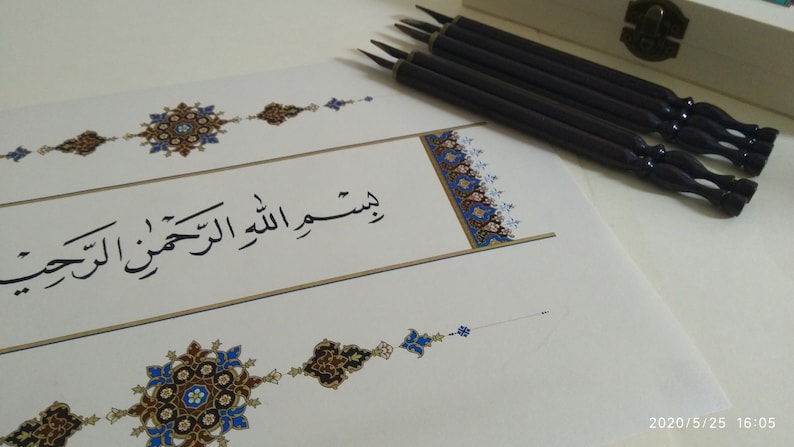 بِسْمِ اللهِ الرَّحْمٰنِ الرَّحِيـ
2020/5/25 16:05